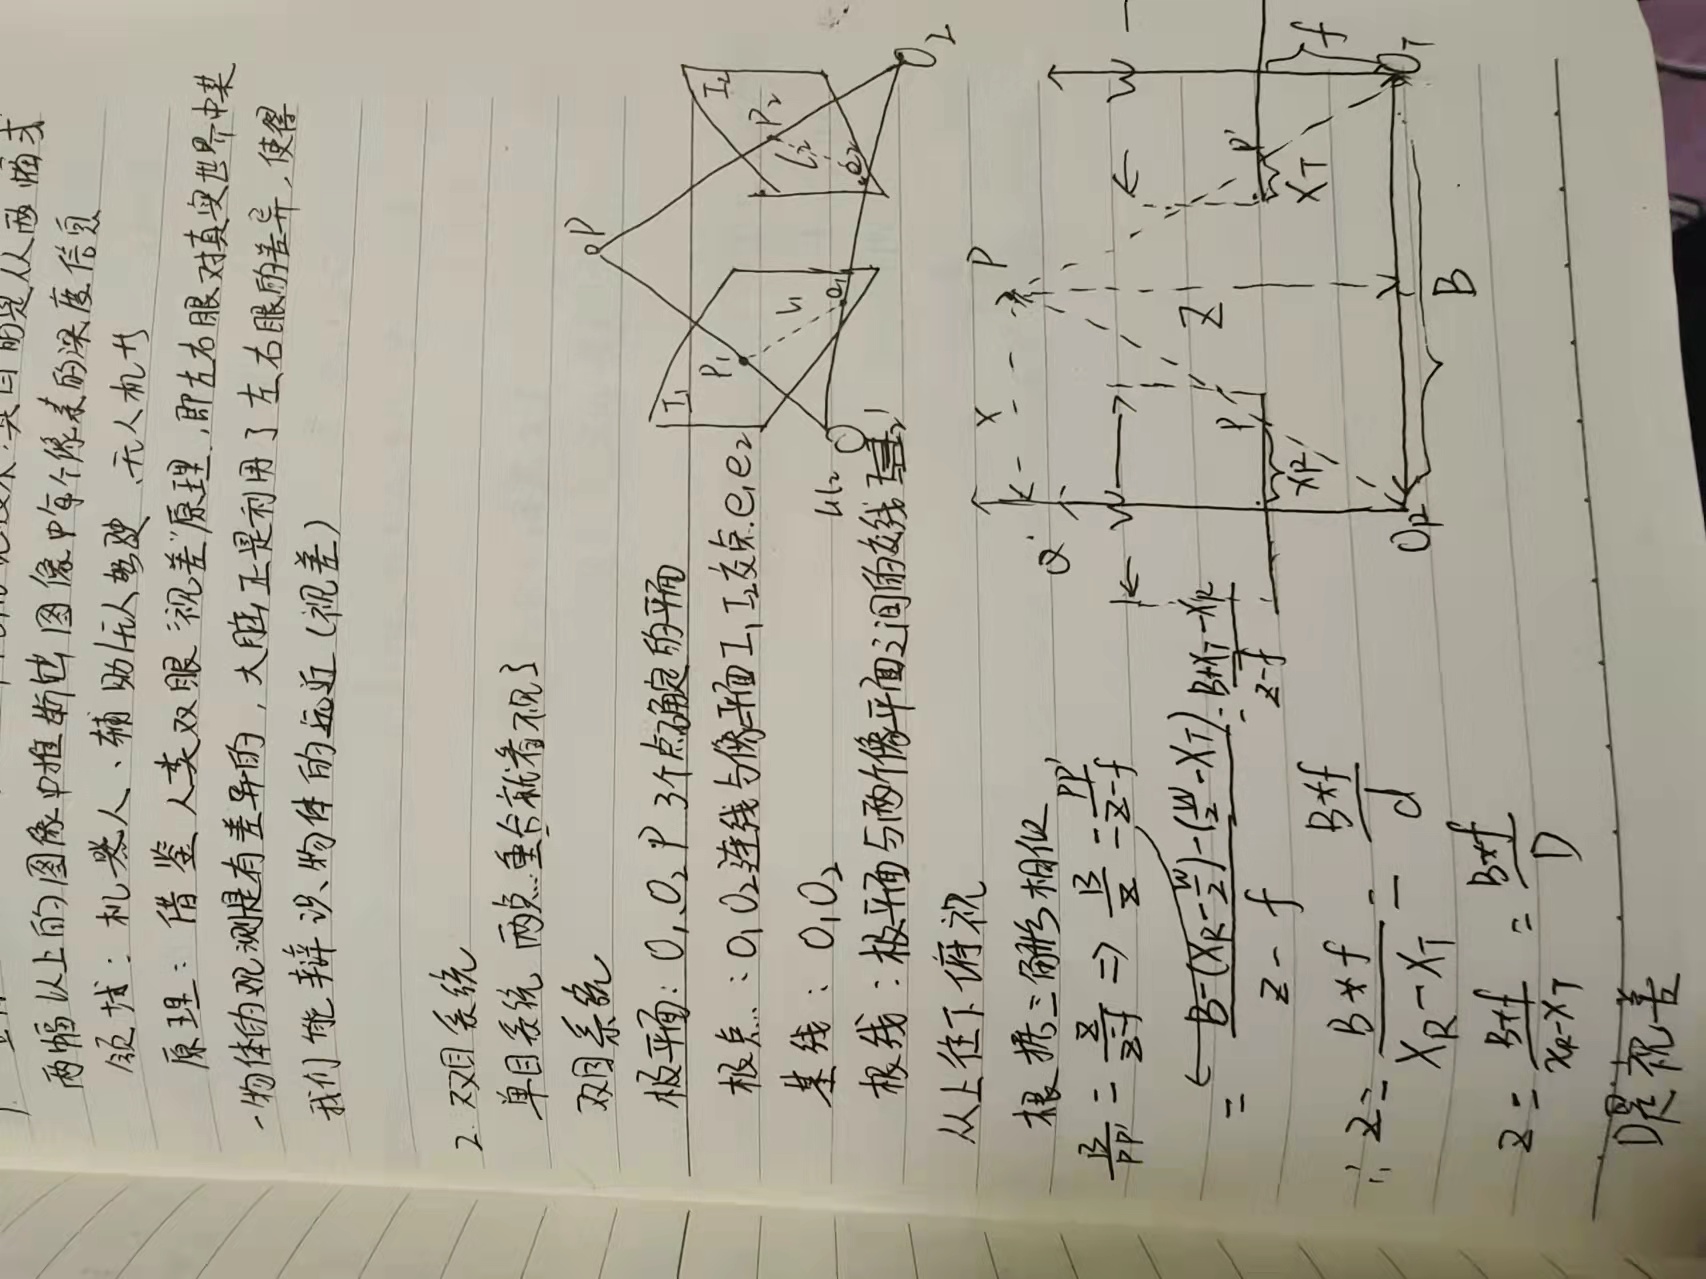 两幅以上的图像中推断出图像中每个像素的深度信息
领域：机器人、辅助/无人驾驶、无人机
原理：借鉴人类双眼"视差"原理，即左右眼对真实世界中某
一物体的观测是有差异的，大脑正是利用了左右眼的差异，使得
我们能辩识物体的远近（视差）
2. 双目系统
单目系统 两点重合就看不见了
双目系统
极平面：O₁ O₂ P 3个点确定的平面
极点：O₁ O₂连线与像平面 I₁ I₂交点 e₁ e₂
基线：O₁O₂
极线：极平面与两个像平面之间的交线
P
I₁
P₁
I₂
P₂
l₂
e₂
e₁
O₂
从上往下俯视
根据三角形相似
B/PP' = Z/Z-f => B/Z = PP'/Z-f
= B-(XR-W/2)-(W/2-XT)/Z-f = B+XT-XR/Z-f
∴ Z = B*f/XR-XT = B*f/d
Z = B*f/XR-XT = B*f/D
D是视差
P
X
Z
W
W
P
XR
P'
XT
f
OR
OT
B